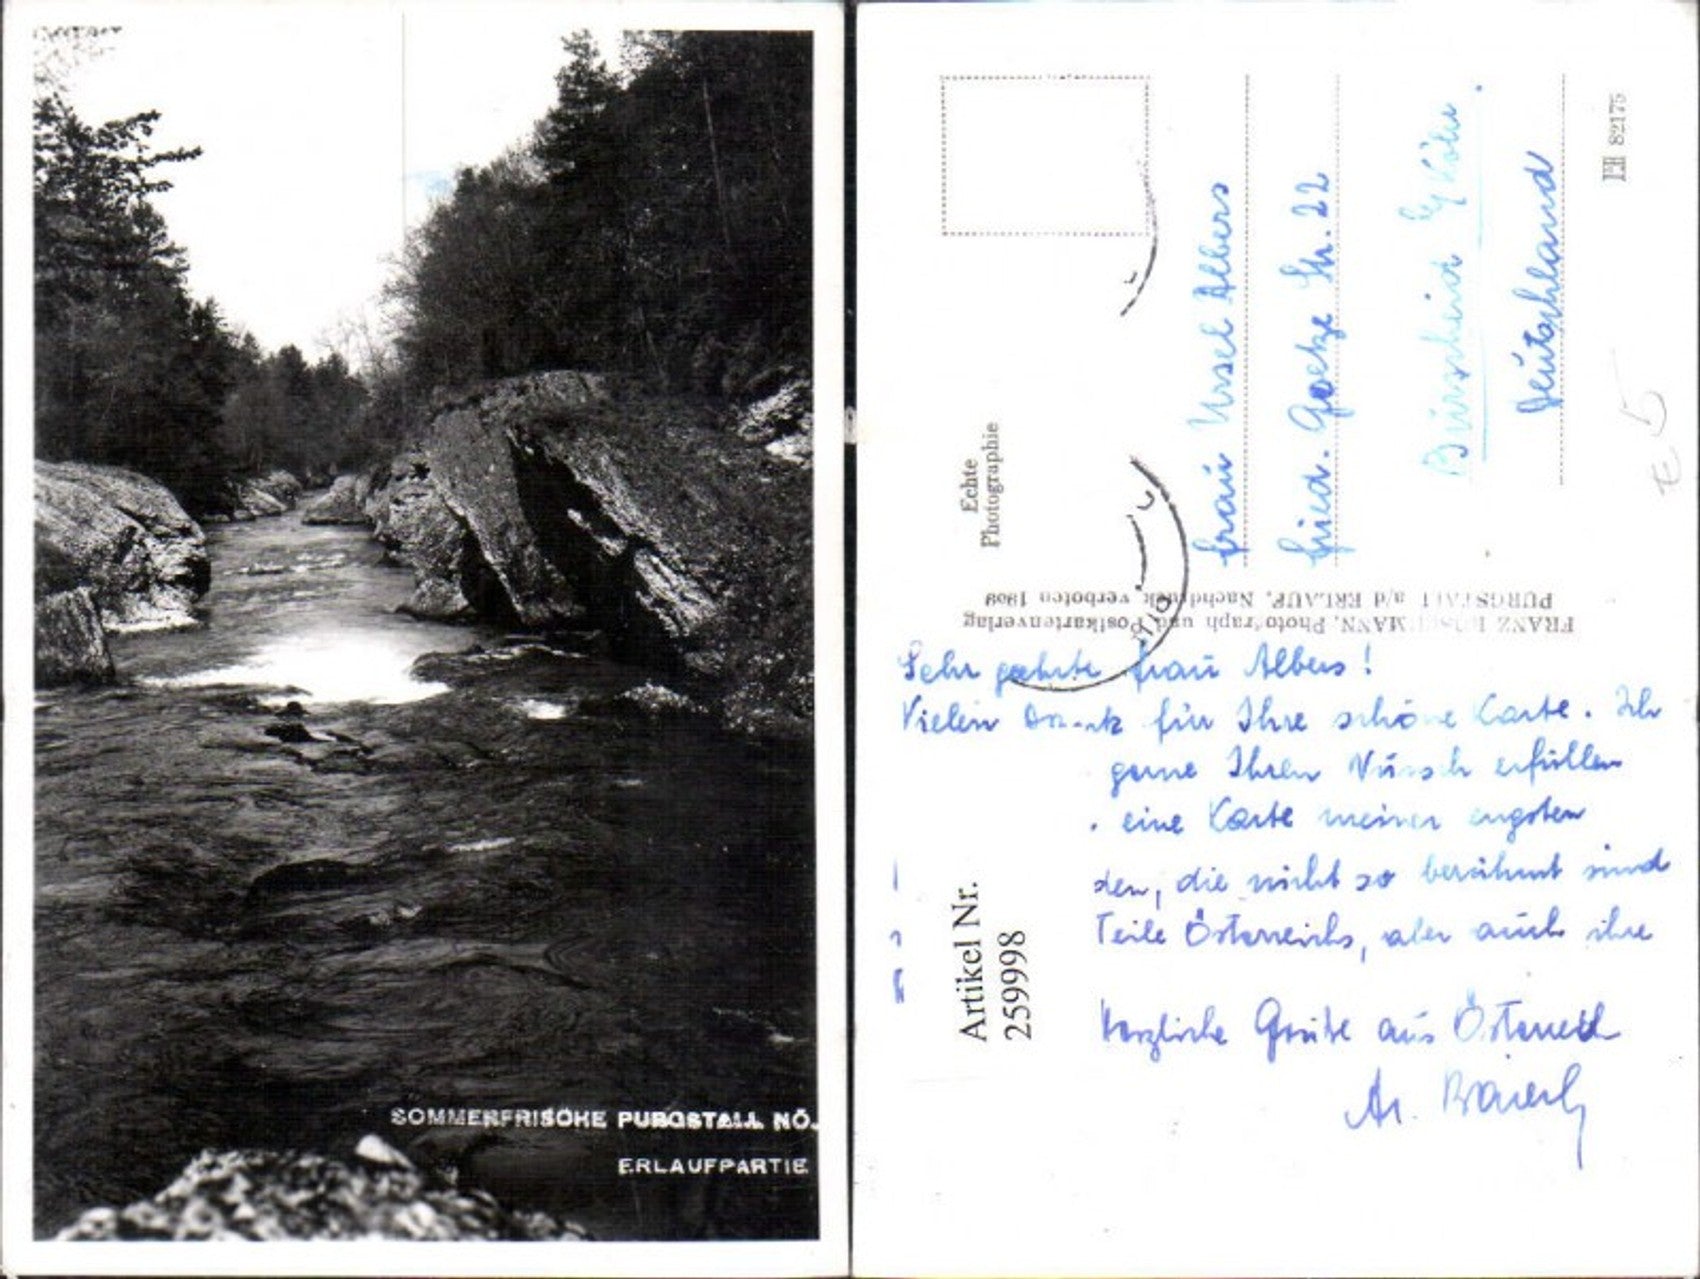 SOMMERFRISCHE PURGSTALL NÖ.
ERLAUFPARTIE
Echte
Photographie
Frau Ursel Albers
Fried. Goetze Str. 22
Burscheid b/ Köln.
Deutschland
82175
FRANZ MANN, Photograph und Postkartenverlag
PURGSTALL a/d ERLAUF, Nachdruck verboten
Artikel Nr.
259998
Sehr geehrte Frau Albers!
Vielen Dank für Ihre schöne Karte. Ich
gerne Ihren Wunsch erfüllen
eine Karte meiner engsten
den, die nicht so berühmt sind
Teile Österreichs, aber auch ihre
Herzliche Grüße aus Österreich